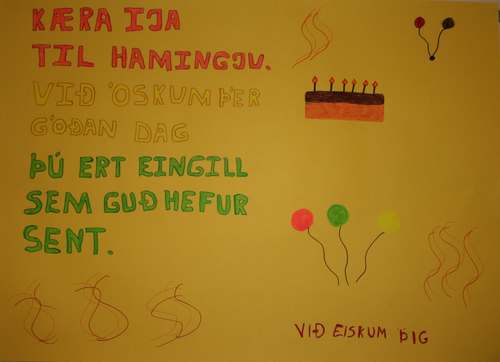 KÆRA IJA
TIL HAMINGJU.
VIÐ ÓSKUM ÞÉR
GÓÐAN DAG
ÞÚ ERT EINGILL
SEM GUÐ HEFUR
SENT.
VIÐ EISKUM ÞIG